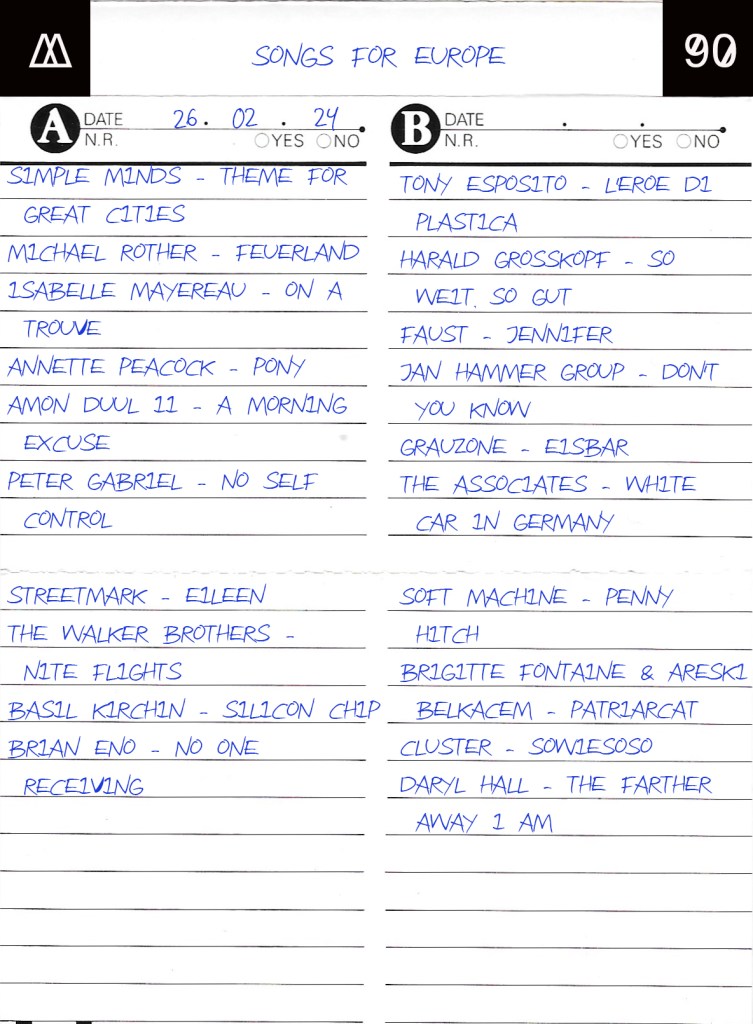 SONGS FOR EUROPE
90
A
DATE 26. 02 . 24
N.R. YES NO
SIMPLE MINDS - THEME FOR
GREAT CITIES
MICHAEL ROTHER - FEUERLAND
ISABELLE MAYEREAU - ON A
TROUVE
ANNETTE PEACOCK - PONY
AMON DUUL II - A MORNING
EXCUSE
PETER GABRIEL - NO SELF
CONTROL
STREETMARK - EILEEN
THE WALKER BROTHERS -
NITE FLIGHTS
BASIL KIRCHIN - SILICON CHIP
BRIAN ENO - NO ONE
RECEIVING
B
DATE . .
N.R. YES NO
TONY ESPOSITO - L'EROE DI
PLASTICA
HARALD GROSSKOPF - SO
WEIT, SO GUT
FAUST - JENNIFER
JAN HAMMER GROUP - DON'T
YOU KNOW
GRAUZONE - EISBAR
THE ASSOCIATES - WHITE
CAR IN GERMANY
SOFT MACHINE - PENNY
HITCH
BRIGITTE FONTAINE & ARESKI
BELKACEM - PATRIARCAT
CLUSTER - SOWIESOSO
DARYL HALL - THE FARTHER
AWAY I AM